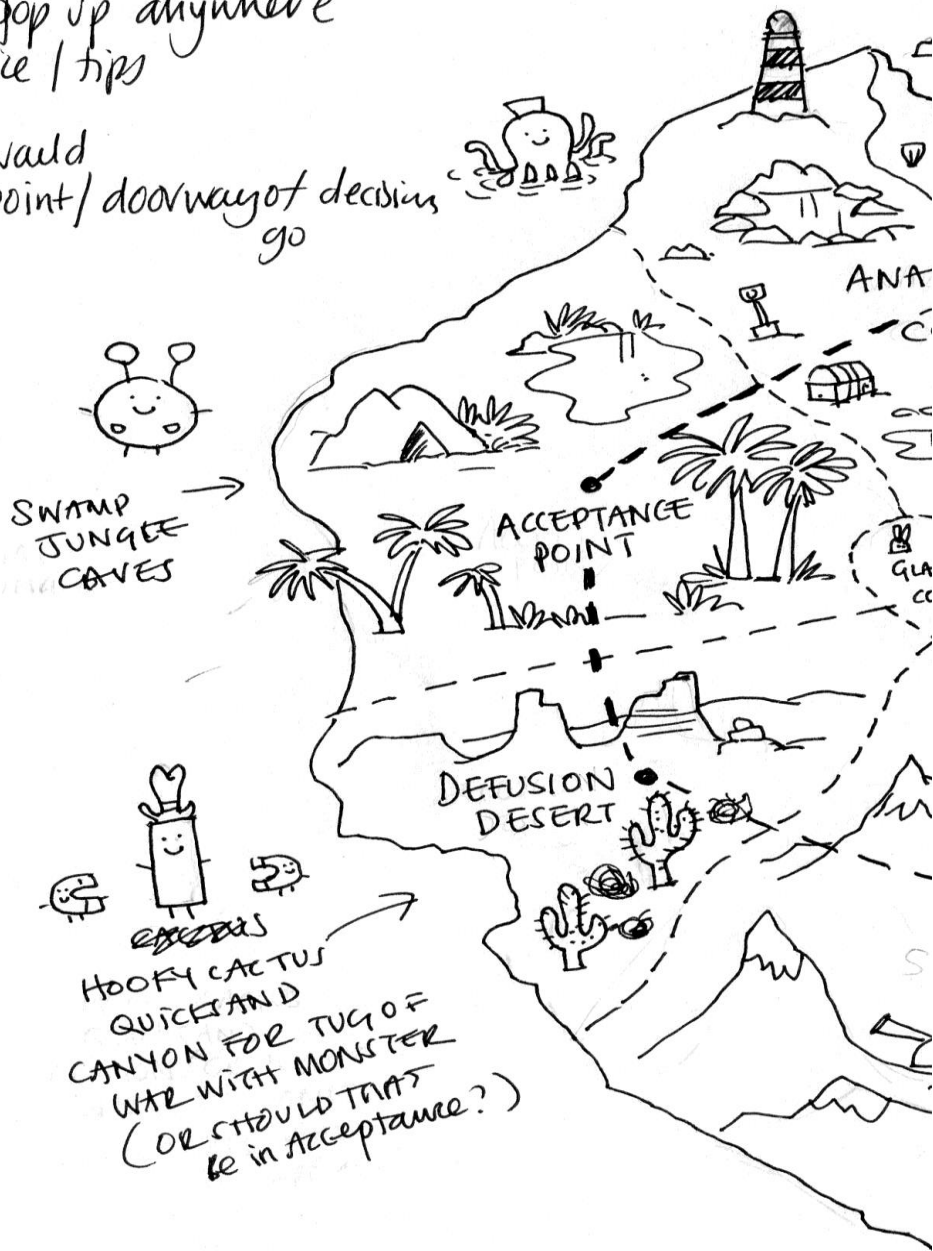 pop up anywhere
ice / tips
world
point / doorway of decision
go
ANA
CO
SWAMP
JUNGLE
CAVES
ACCEPTANCE
POINT
GLA
CO
DEFUSION
DESERT
HOOKY CACTUS
QUICKSAND
CANYON FOR TUG OF
WAR WITH MONSTER
(OR SHOULD THAT
be in Acceptance?)
S